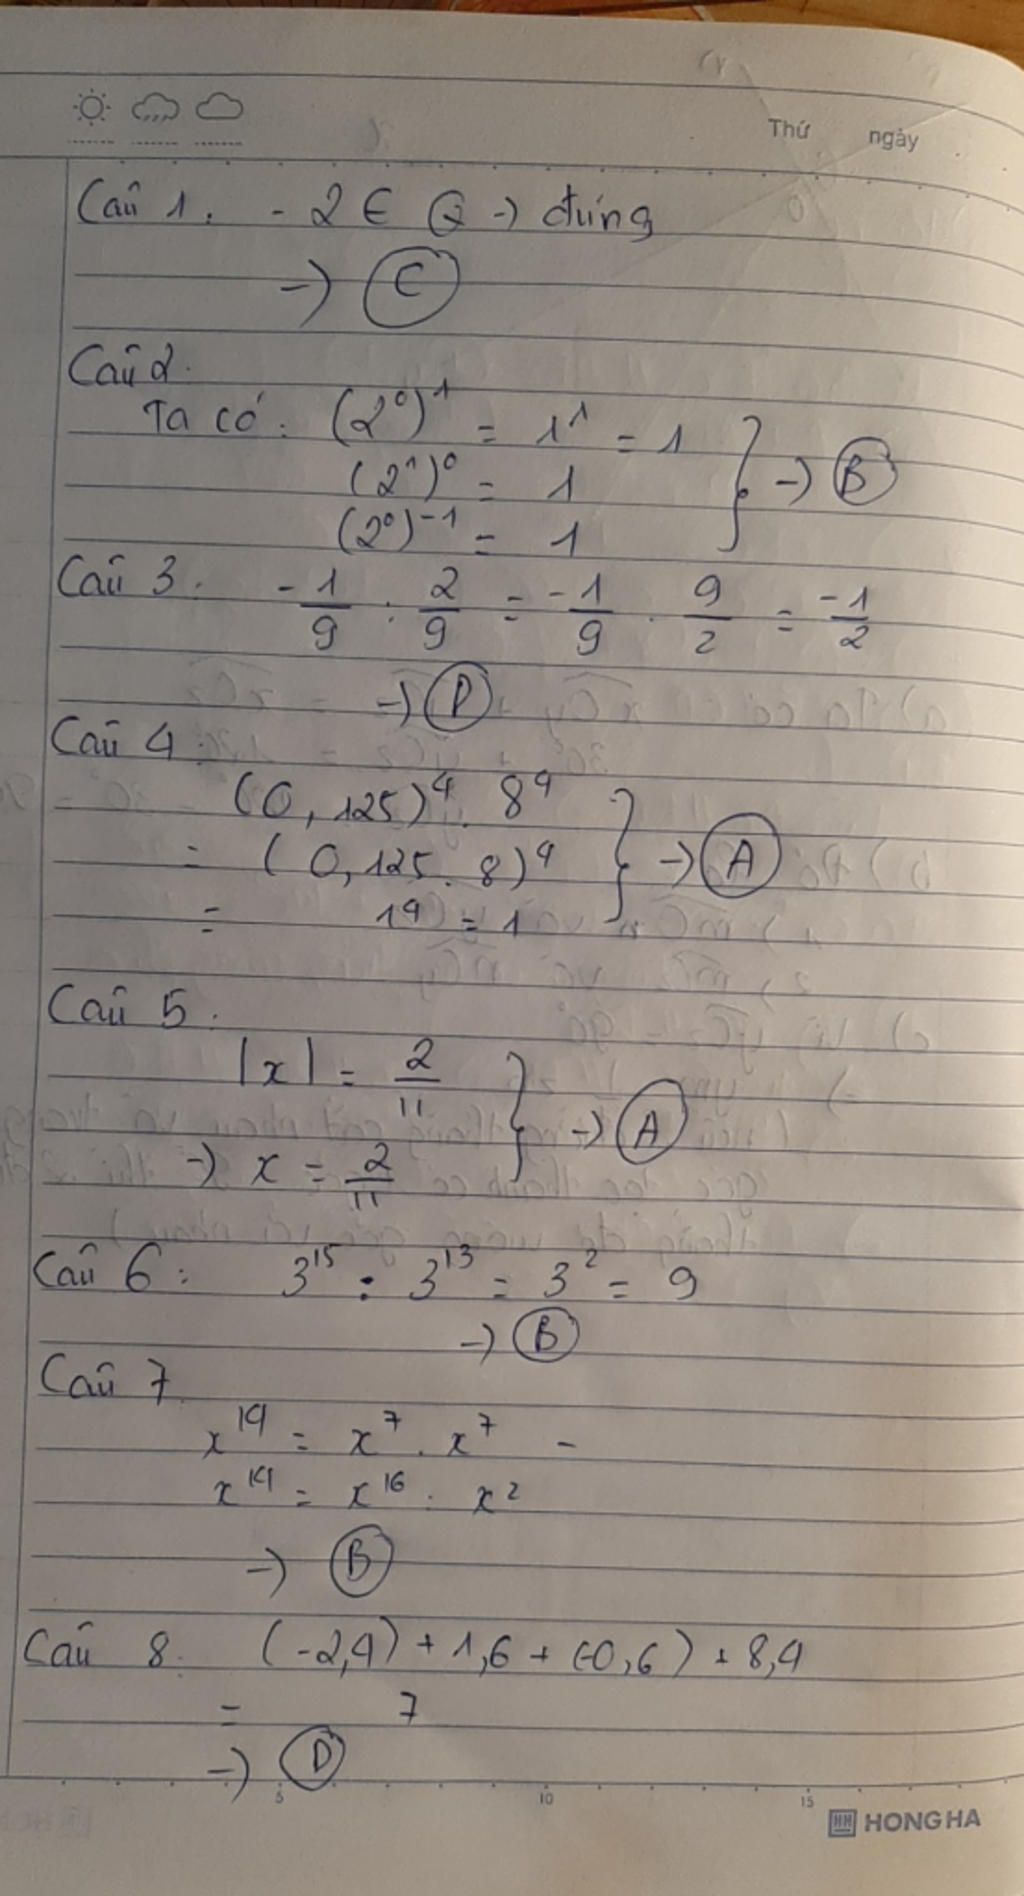 Thứ ngày
Câu 1. - 2 ∈ Q -> đúng
-> C
Câu 2.
Ta có: (2⁰)¹ = 1¹ = 1
(2¹)⁰ = 1 } -> B
(2⁰)⁻¹ = 1
Câu 3. -1/9 : 2/9 = -1/9 . 9/2 = -1/2
-> D
Câu 4:
(0,125)⁴ . 8⁴
= (0,125 . 8)⁴ } -> A
= 1⁴ = 1
Câu 5:
|x| = 2/11
} -> A
-> x = 2/11
Câu 6: 3¹⁵ : 3¹³ = 3² = 9
-> B
Câu 7
x¹⁴ = x⁷ . x⁷ -
x¹⁴ = x¹⁶ : x²
-> B
Câu 8. (-2,4) + 1,6 + (-0,6) + 8,4
= 7
-> D
5 10 15
HONG HA